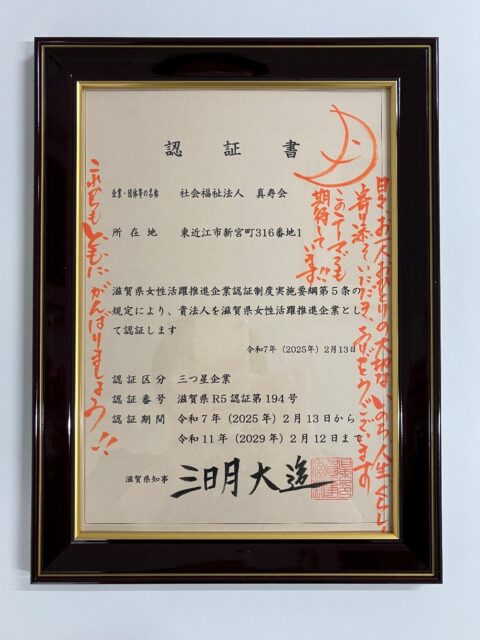 認証書
企業・団体等の名称 社会福祉法人 真寿会
所在地 東近江市新宮町316番地1
滋賀県女性活躍推進企業認証制度実施要綱第5条の
規定により、貴法人を滋賀県女性活躍推進企業とし
て認証します
令和7年（2025年）2月13日
認証区分 三つ星企業
認証番号 滋賀県R5認証第194号
認証期間 令和7年（2025年）2月13日から
令和11年（2029年）2月12日まで
滋賀県知事 三日月大造
日々、お一人おひとりの大切ないのち、人生、くらしに
寄り添っていただき、ありがとうございます
このテーマでも
期待しています!!
これからもともにがんばりましょう!!